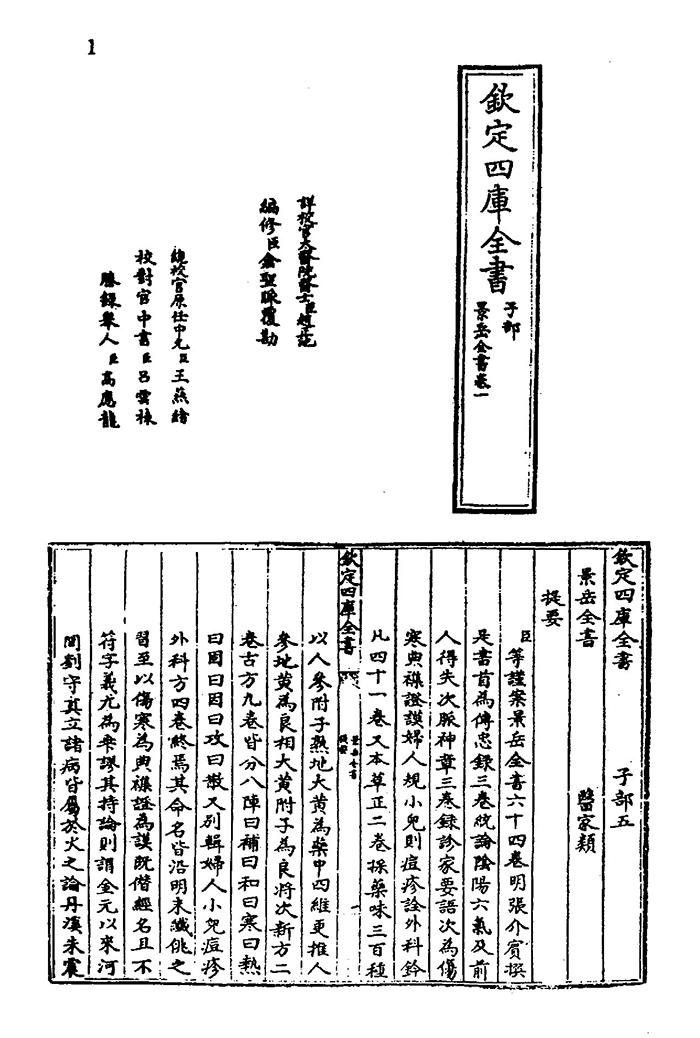 1
欽定四庫全書
子部
景岳全書卷一
詳校官太醫院醫士臣趙正池
編修臣倉聖脈覆勘
總校官原任中允臣王燕緒
校對官中書臣呂雲棟
謄錄舉人臣高應龍
欽定四庫全書 子部五
景岳全書 醫家類
提要
臣等謹案景岳全書六十四卷明張介賓撰
是書首為傳忠録三卷統論陰陽六氣及前
人得失次脈神章三卷録診家要語次為傷
寒典襍證謨婦人規小兒則痘疹詮外科鈐
凡四十一卷又本草正二卷採藥味三百種
欽定四庫全書
景岳全書
提要
一
以人參附子熟地大黃為藥中四維更推人
參地黃為良相大黃附子為良將次新方二
卷古方九卷皆分八陣曰補曰和曰寒曰熱
曰固曰因曰攻曰散又別輯婦人小兒痘疹
外科方四卷終焉其命名皆沿明末纖佻之
習至以傷寒為典襍證為謨既僭經名且不
符字義尤為乖謬其持論則謂金元以來河
間劉守真立諸病皆屬於火之論丹溪朱震